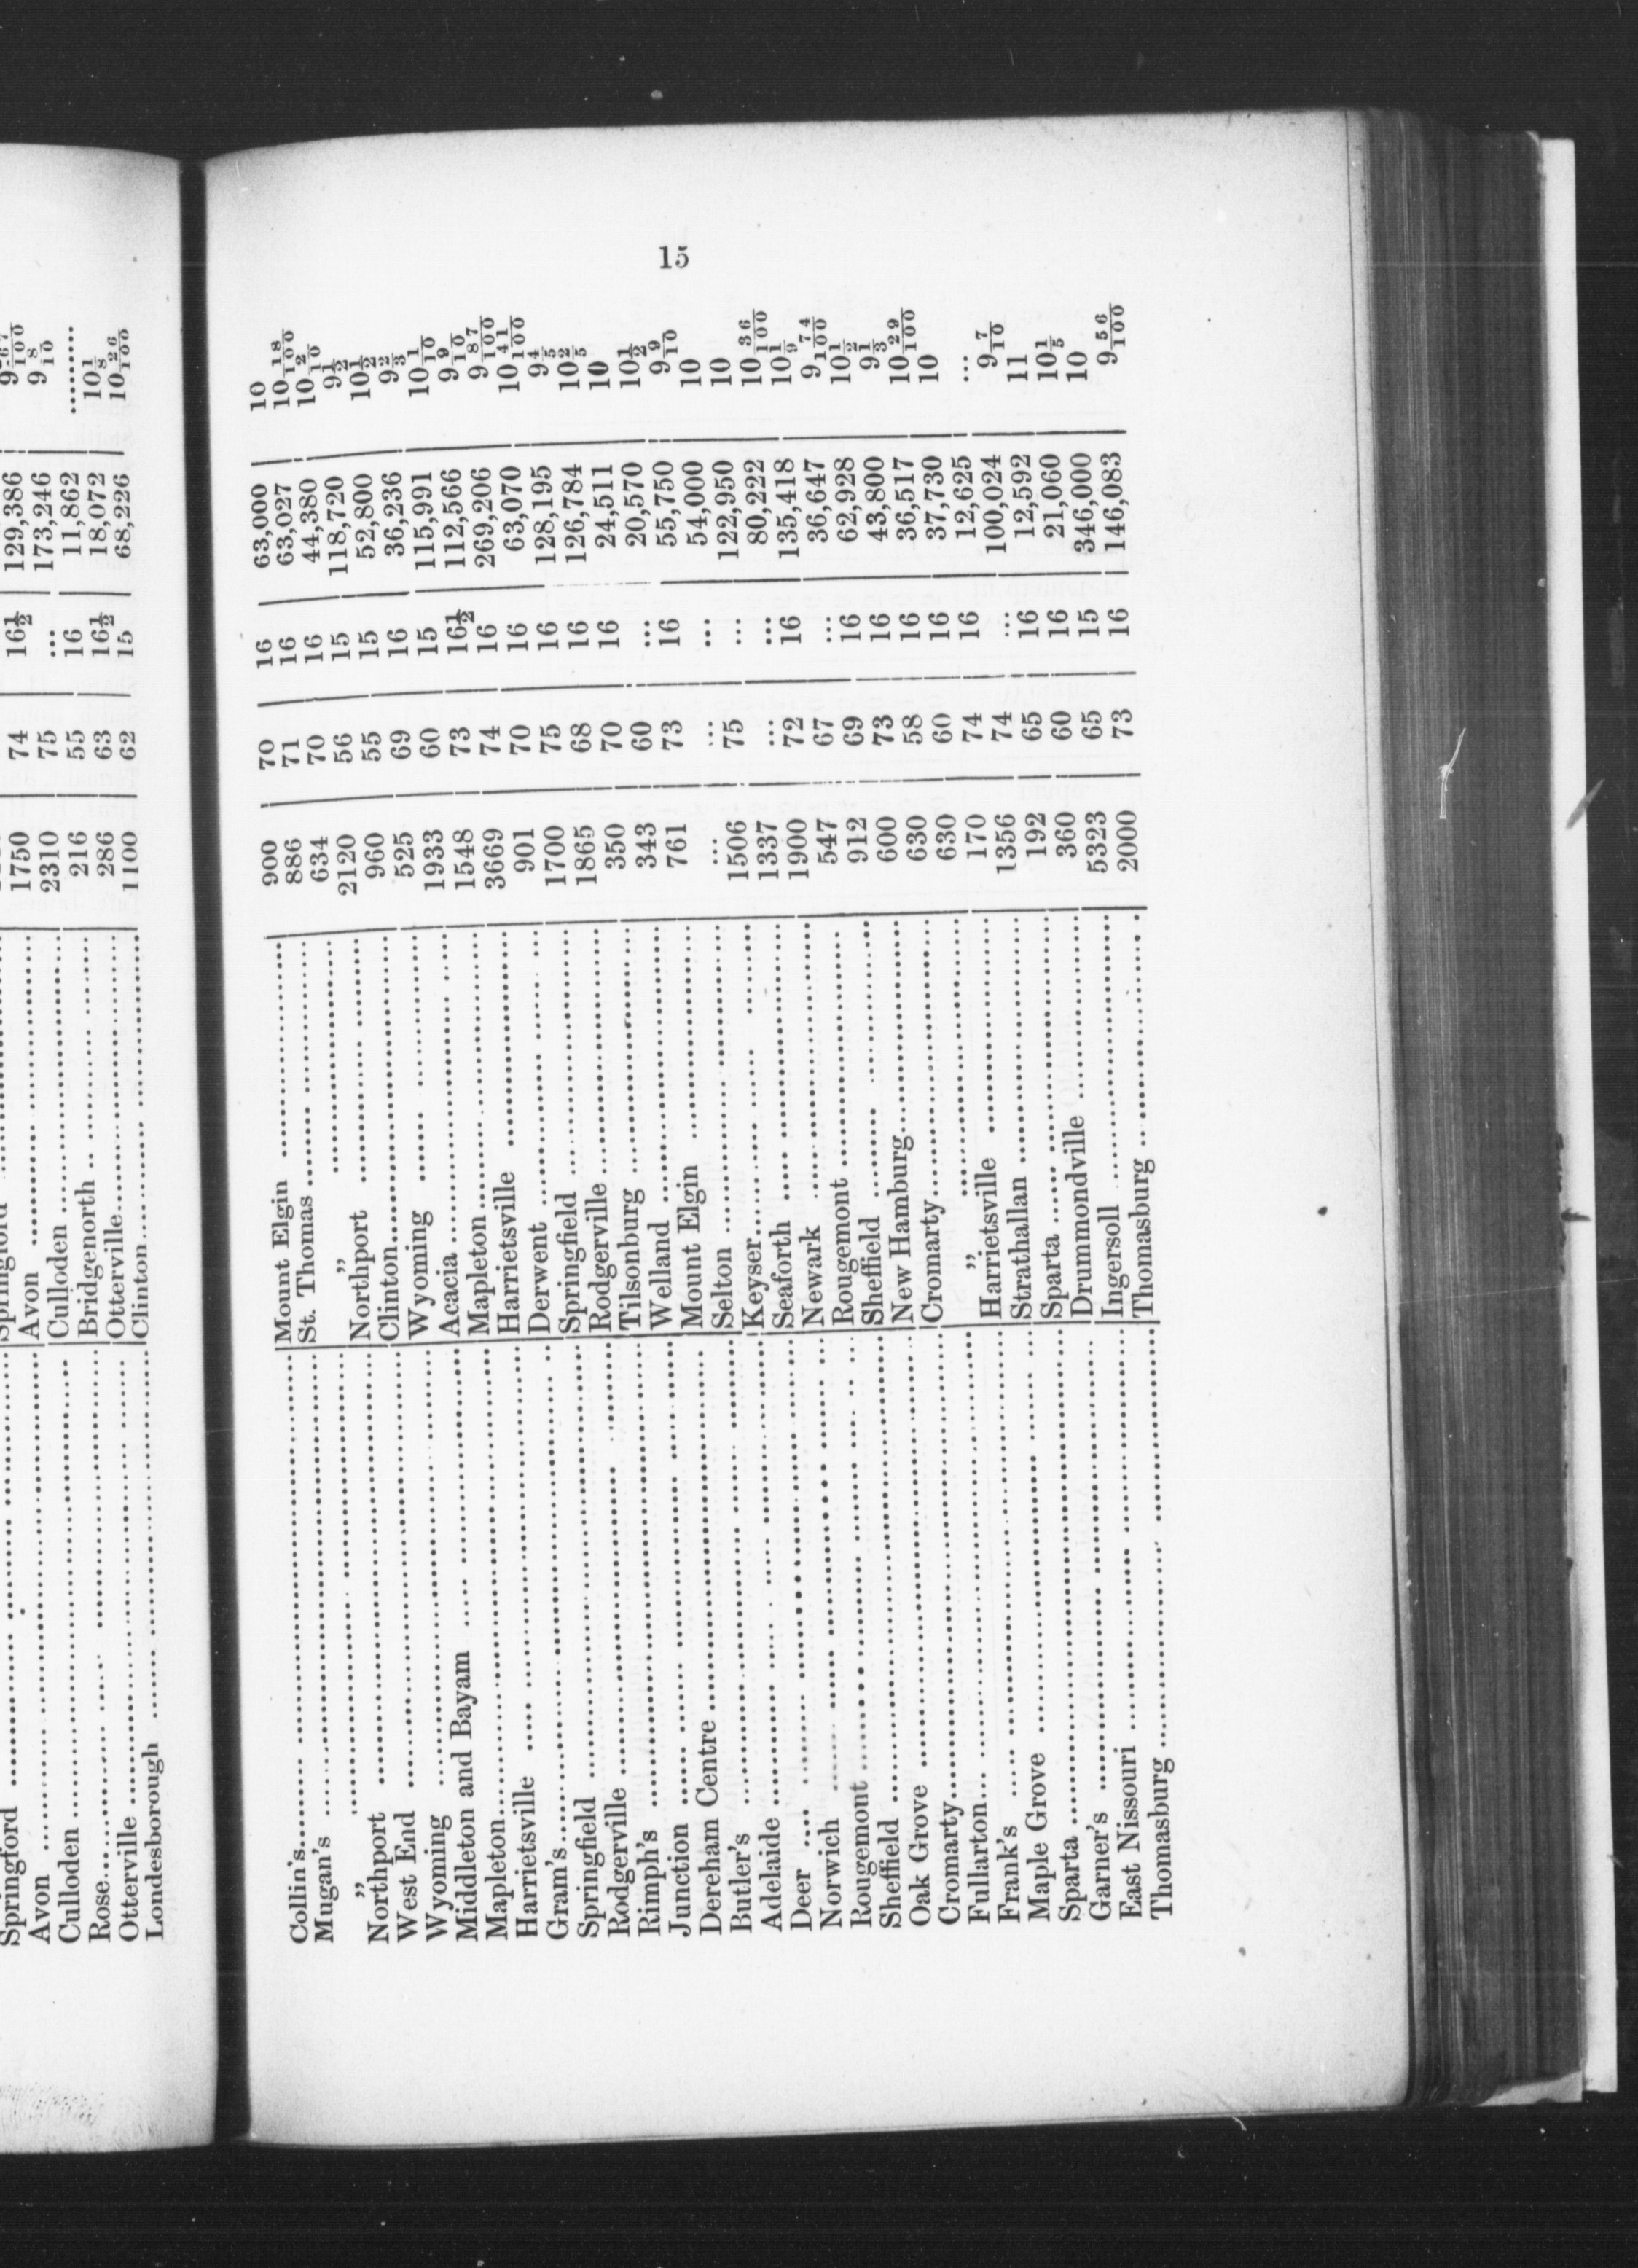 Springford Springford
Avon Avon 1750 74 16½ 129,386
Culloden Culloden 2310 75 ... 173,246 9 8/10
Rose Bridgenorth 216 55 16 11,862 .........
Otterville Otterville 286 63 16½ 18,072 10 1/8
Londesborough Clinton 1100 62 15 68,226 10 26/100
15
Collin's Mount Elgin 900 70 16 63,000 10
Mugan's St. Thomas 886 71 16 63,027 10 18/100
" " 634 70 16 44,380 10 2/10
Northport Northport 2120 56 15 118,720 9½
West End Clinton 960 55 15 52,800 10½
Wyoming Wyoming 525 69 16 36,236 9 2/3
Middleton and Bayam Acacia 1933 60 15 115,991 10 1/10
Mapleton Mapleton 1548 73 16½ 112,566 9 9/10
Harrietsville Harrietsville 3669 74 16 269,206 9 87/100
Gram's Derwent 901 70 16 63,070 10 41/100
Springfield Springfield 1700 75 16 128,195 9 4/5
Rodgerville Rodgerville 1865 68 16 126,784 10 2/5
Rimph's Tilsonburg 350 70 16 24,511 10
Junction Welland 343 60 ... 20,570 10½
Dereham Centre Mount Elgin 761 73 16 55,750 9 9/10
Butler's Selton ... ... ... 54,000 10
Adelaide Keyser 1506 75 ... 122,950 10
Deer Seaforth 1337 ... ... 80,222 10 36/100
Norwich Newark 1900 72 16 135,418 10 1/9
Rougemont Rougemont 547 67 ... 36,647 9 74/100
Sheffield Sheffield 912 69 16 62,928 10½
Oak Grove New Hamburg 600 73 16 43,800 9 1/3
Cromarty Cromarty 630 58 16 36,517 10 29/100
Fullarton " 630 60 16 37,730 10
Frank's Harrietsville 170 74 16 12,625 ...
Maple Grove Strathallan 1356 74 ... 100,024 9 7/10
Sparta Sparta 192 65 16 12,592 11
Garner's Drummondville 360 60 16 21,060 10 1/5
East Nissouri Ingersoll 5323 65 15 346,000 10
Thomasburg Thomasburg 2000 73 16 146,083 9 56/100